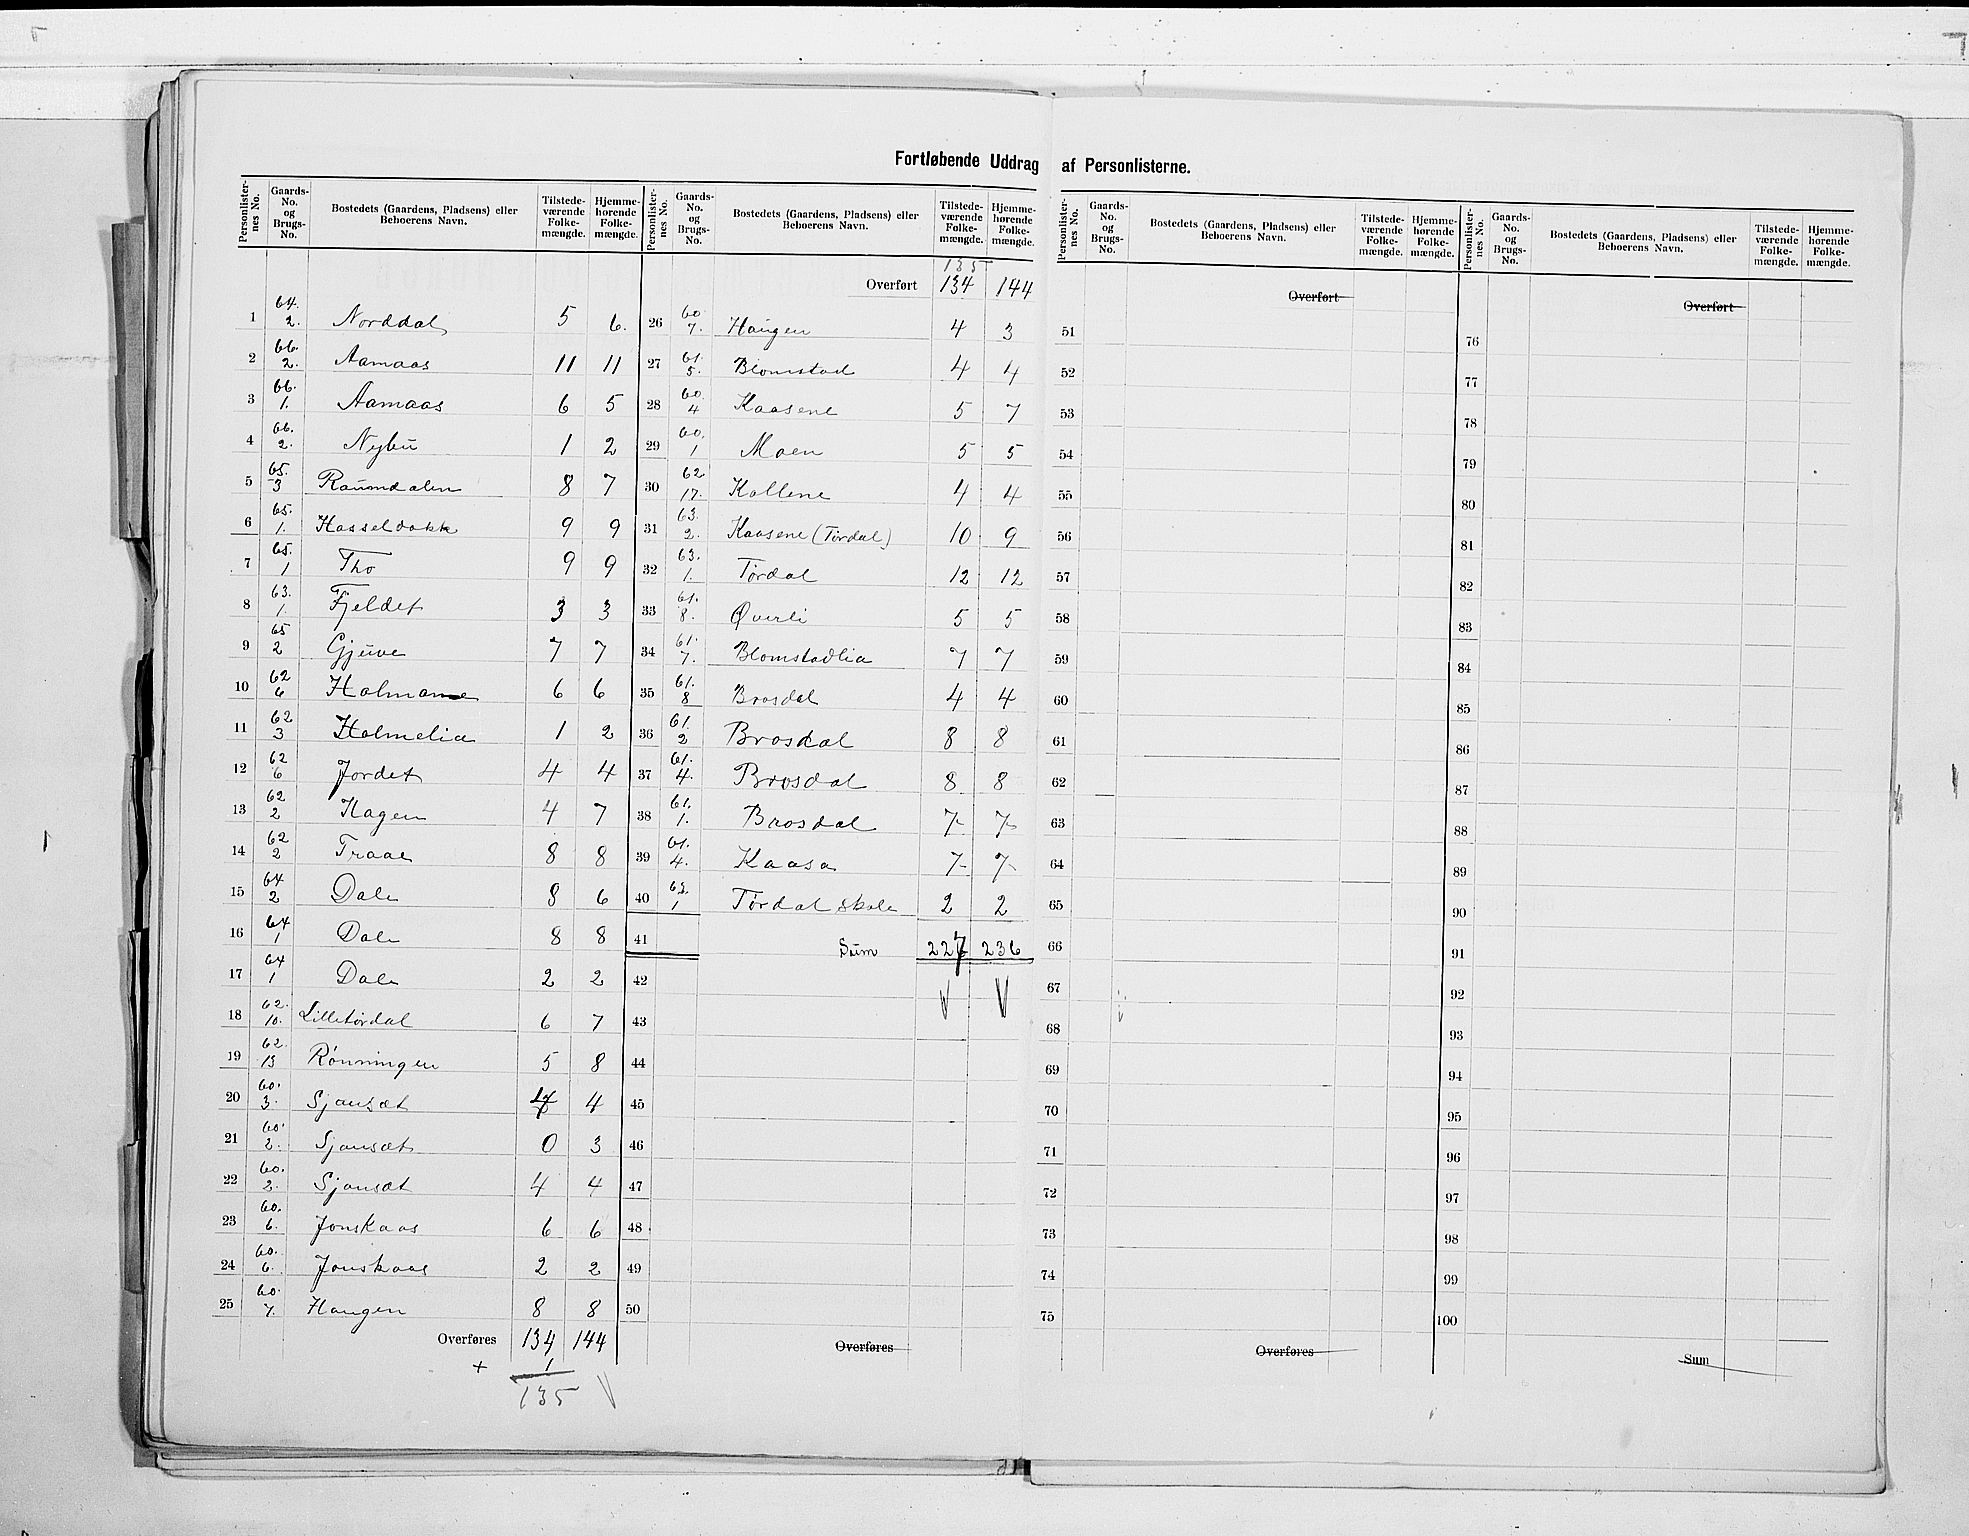 Fortløbende Uddrag af Personlisterne.
Personlisternes No. Gaards-No. og Brugs-No. Bostedets (Gaardens, Pladsens) eller Beboerens Navn. Tilstedeværende Folkemængde. Hjemmehørende Folkemængde.
1 64. 2. Norddal 5 6.
2 66. 2. Aamaas 11 11
3 66. 1. Aamaas 6 5
4 66. 2. Nybu 1 2
5 65. 3 Raumdalen 8 7
6 65. 1. Hasseldokk 9 9
7 65. 1 Tho 9 9
8 63. 1. Fjeldet 3 3
9 65 2 Gjuve 7 7
10 62 6 Holmane 6 6
11 62 3 Holmelia 1 2
12 62 6 Jordet 4 4
13 62 2 Hagen 4 7
14 62 2 Traae 8 8
15 64 2 Dale 8 6
16 64 1 Dale 8 8
17 64 1 Dale 2 2
18 62. 10. Lilletørdal 6 7
19 62. 13 Rønningen 5 8
20 60. 3. Sjausæt 4
21 60. 2. Sjausæt 0 3
22 60. 2. Sjausæt 4 4
23 60. 6. Jonskaas 6 6
24 60. 6. Jonskaas 2 2
25 60. 7. Haugen 8 8
Overføres 134 144
+ 1
135
Personlisternes No. Gaards-No. og Brugs-No. Bostedets (Gaardens, Pladsens) eller Beboerens Navn. Tilstedeværende Folkemængde. Hjemmehørende Folkemængde.
135
Overført 134 144
26 60 7. Haugen 4 3
27 61. 5. Blomstad 4 4
28 60. 4 Kaasene 5 7
29 60. 1 Moen 5 5
30 62 17. Kollene 4 4
31 63. 2. Kaasene (Tørdal) 10 9
32 63. 1. Tørdal 12 12
33 61. 8. Øverli 5 5
34 61. 7. Blomstadlia 7 7
35 61. 8 Brosdal 4 4
36 61. 2 Brosdal 8 8
37 61. 4. Brosdal 8 8
38 61. 1. Brosdal 7 7
39 61. 4. Kaasa 7 7
40 63. 1 Tørdal skole 2 2
41 Sum 227 236
42
43
44
45
46
47
48
49
50
Overføres
Personlisternes No. Gaards-No. og Brugs-No. Bostedets (Gaardens, Pladsens) eller Beboerens Navn. Tilstedeværende Folkemængde. Hjemmehørende Folkemængde.
Overført
51
52
53
54
55
56
57
58
59
60
61
62
63
64
65
66
67
68
69
70
71
72
73
74
75
Overføres
Personlisternes No. Gaards-No. og Brugs-No. Bostedets (Gaardens, Pladsens) eller Beboerens Navn. Tilstedeværende Folkemængde. Hjemmehørende Folkemængde.
Overført
76
77
78
79
80
81
82
83
84
85
86
87
88
89
90
91
92
93
94
95
96
97
98
99
100
Sum